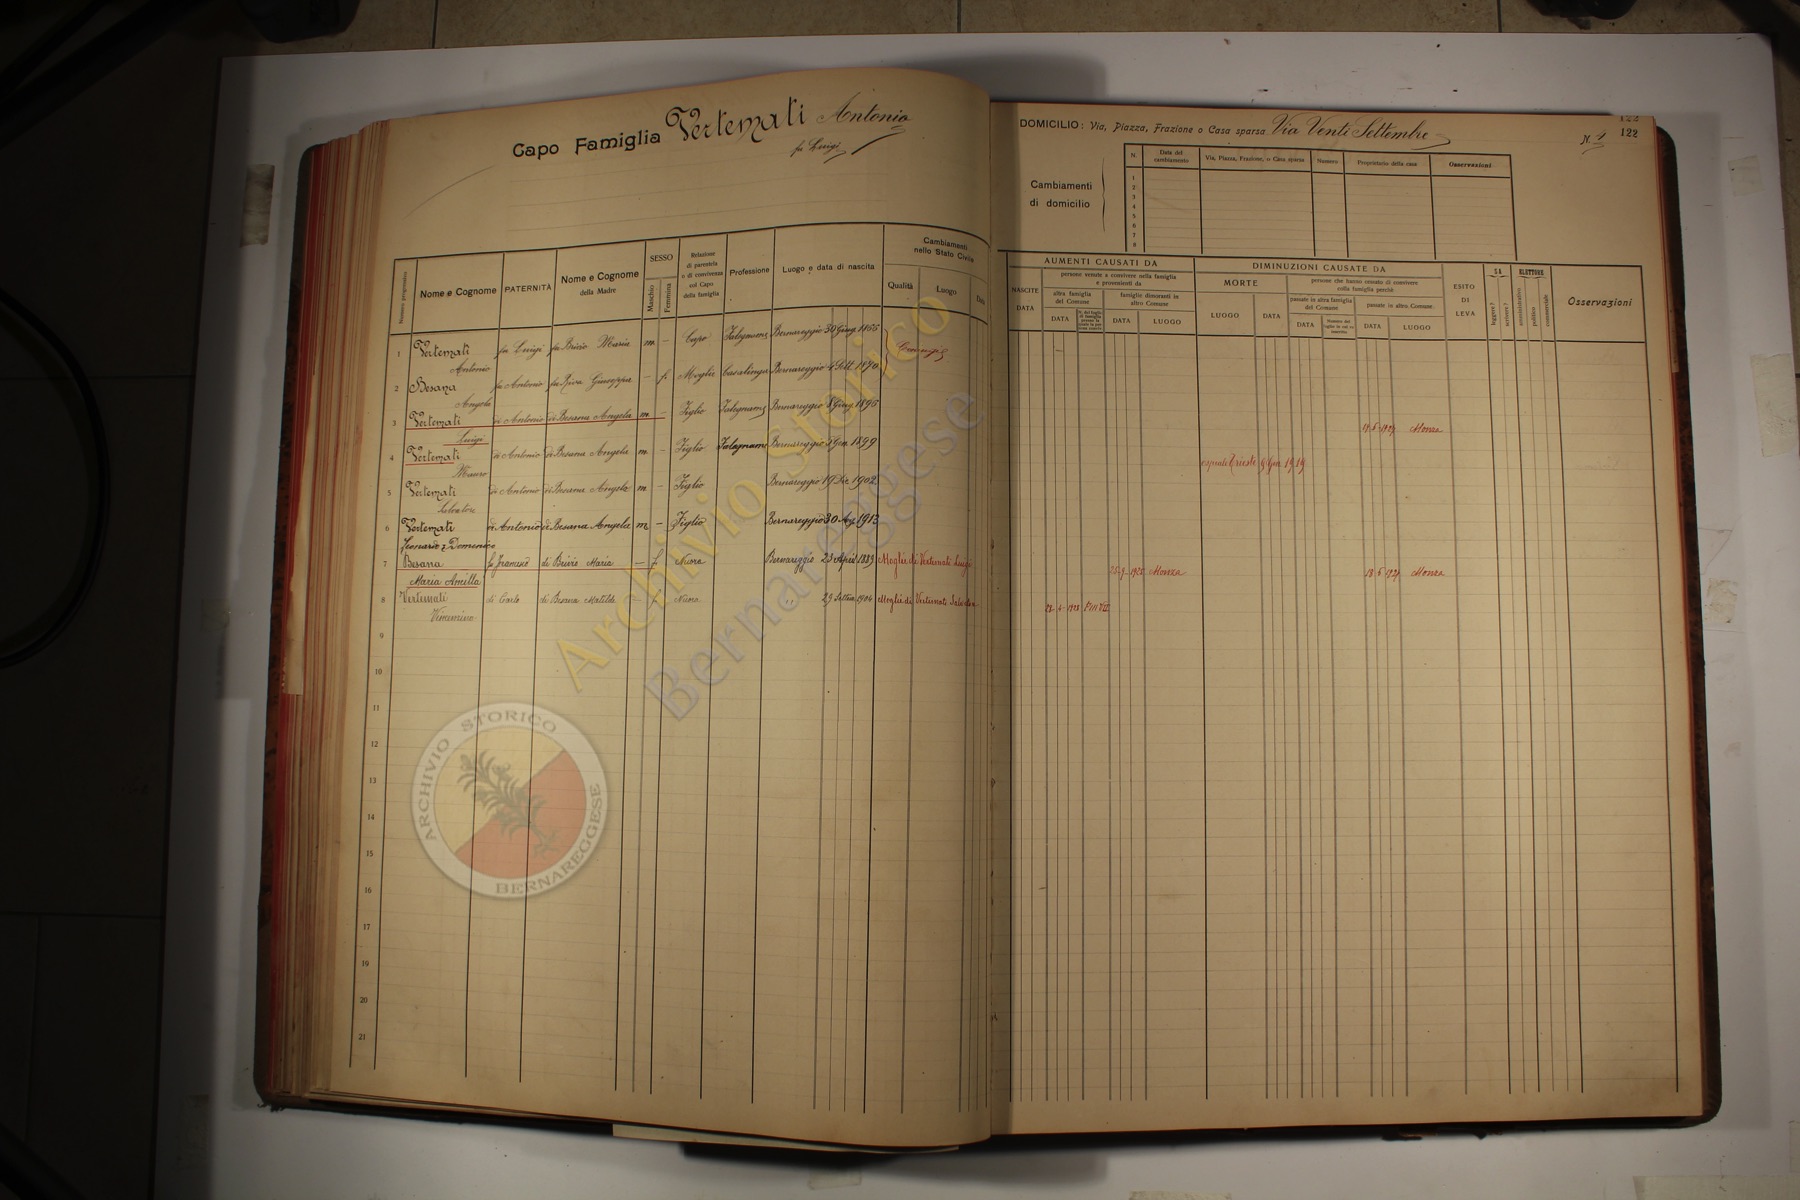 Capo Famiglia Vertemati Antonio
fu Luigi
DOMICILIO: Via, Piazza, Frazione o Casa sparsa Via Venti Settembre
N. 4
122
122
Cambiamenti
di domicilio
N. Data del cambiamento Via, Piazza, Frazione, o Casa sparsa Numero Proprietario della casa Osservazioni
1
2
3
4
5
6
7
8
Numero progressivo Nome e Cognome PATERNITÀ Nome e Cognome della Madre SESSO Maschio Femmina Relazione di parentela o di convivenza col Capo della famiglia Professione Luogo e data di nascita Cambiamenti nello Stato Civile Qualità Luogo Data
AUMENTI CAUSATI DA
NASCITE DATA
persone venute a convivere nella famiglia e provenienti da
altra famiglia del Comune DATA
famiglie dimoranti in altro Comune DATA LUOGO
DIMINUZIONI CAUSATE DA
MORTE LUOGO DATA
persone che hanno cessato di convivere colla famiglia perchè
passate in altra famiglia del Comune DATA
passate in altro Comune DATA LUOGO
ESITO DI LEVA
SA leggere? scrivere?
ELETTORE amministrativo politico commerciale
Osservazioni
1 Vertemati Antonio fu Luigi fu Brivio Maria m. - Capo Falegname Bernareggio 30 Giug. 1866 Coniugi
2 Besana Angela fu Antonio fu Riva Giuseppa - f. Moglie Casalinga Bernareggio 4 Sett. 1870
3 Vertemati Luigi di Antonio di Besana Angela m. - Figlio Falegname Bernareggio 8 Giug. 1896 Monza
4 Vertemati Mauro di Antonio di Besana Angela m. - Figlio Falegname Bernareggio Gen. 1899 Trieste 9 Gen. 1919
5 Vertemati Salvatore di Antonio di Besana Angela m. - Figlio Bernareggio 19 Dic. 1902
6 Vertemati Leonardo Domenico di Antonio di Besana Angela m. - Figlio Bernareggio 30 1913
7 Besana Maria Ancilla fu Francesco di Brivio Maria - f. Nuora Bernareggio 23 April 1889 Moglie di Vertemati Luigi Monza Monza
8 Vertemati di Carlo di Besana Matilde - f. Nuora " 29 Settem. 1904 Moglie di Vertemati Salvatore
9
10
11
12
13
14
15
16
17
18
19
20
21
Archivio Storico
Bernareggese
ARCHIVIO STORICO
BERNAREGGESE